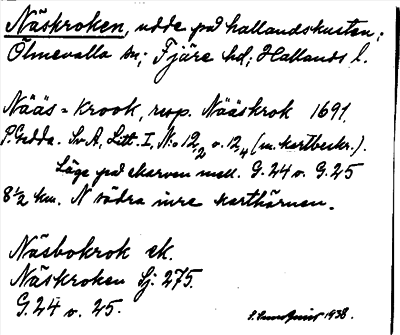 Näskroken, udde på hallandskusten;
Ölmevalla sn; Fjäre hd; Hallands l.
Nääs=krook, resp. Nääskrok 1691.
P. Gedda. Sv. A, Litt. I, N:o 12,2 o. 12,4 (m. kartbeskr.).
Läge på skarven mell. G. 24 o. G. 25
8 1/2 km. N södra inre karthörnen.
Näsbokrok ek.
Näskroken Sj: 275.
G. 24 o. 25.
1938.